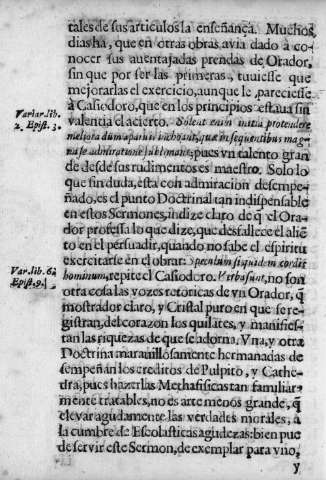 tales de sus articulos la enseñança. Muchos
dias ha, que en otras obras avia dado à co-
nocer sus auentajadas prendas de Orador,
sin que por ser las primeras, tuuiesse que
mejorarlas el exercicio, aunque le pareciesse
à Casiodoro, que en los principios estaua sin
Variar. lib.
2. Epist. 3.
valentia el acierto. Solent enim initia protendere
meliora dum apari inchoant, quæ in sequentibus mag-
na se admiratione sublimant; pues vn talento gran
de desde sus rudimentos es maestro. Solo lo
que sin duda, està con admiracion desempe-
ñado, es el punto Doctrinal tan indispensable
en estos Sermones, indize claro de q̃ el Ora-
dor professa lo que dize, que desfallece el aliẽ
to en el persuadir, quando no sabe el espiritu
exercitarse en el obrar. Speculum siquidem cordis
Var. lib. 6.
Epist. 9.
hominum, repite el Casiodoro. Verba sunt, no son
otra cosa las vozes retoricas de vn Orador, q̃
mostrador claro, y Cristal puro en que se re-
gistran, del coraçon los quilates, y manifies-
tan las riquezas de que se adorna. Vna, y otra
Doctrina marauillosamente hermanadas de
sempeñan los creditos de Pulpito, y Cathe-
dra, pues hazer las Methafisicas tan familiar-
mente tratables, no es arte menos grande, q̃
elevar agudamente las verdades morales, à
la cumbre de Escolasticas agudezas: bien pue
de servir este Sermon, de exemplar para vno,
y